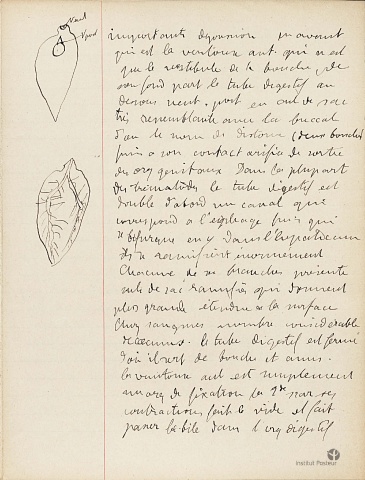 V ant
V post
importants dépression en avant
qui est la ventouse ant. qui n est
que le vestibule de la bouche, de
son fond part le tube digestif au
dessous vent. post en cul de sac
très ressemblante avec la buccal
d'où le nom de distome (deux bouches)
puis a son contact orifice de sortie
des org genitaux Dans la plupart
des trématodes le tube digestif est
double d'abord un canal que
correspond a l'œsophage puis qui
se bifurque en y dans l'hepaticum
ils se ramifient enormement
Chacune de ses branches présente
culs de sac ramifiés qui donnent
plus grande étendue a la surface
Chez nombre considérable
de caecums. le tube digestif est fermé
d'où il sert de bouche et anus.
la ventouse ant est simplement
un org de fixation la 2de par ses
contractions fait le vide et fait
passer la bile dans l'org digestif
Institut Pasteur